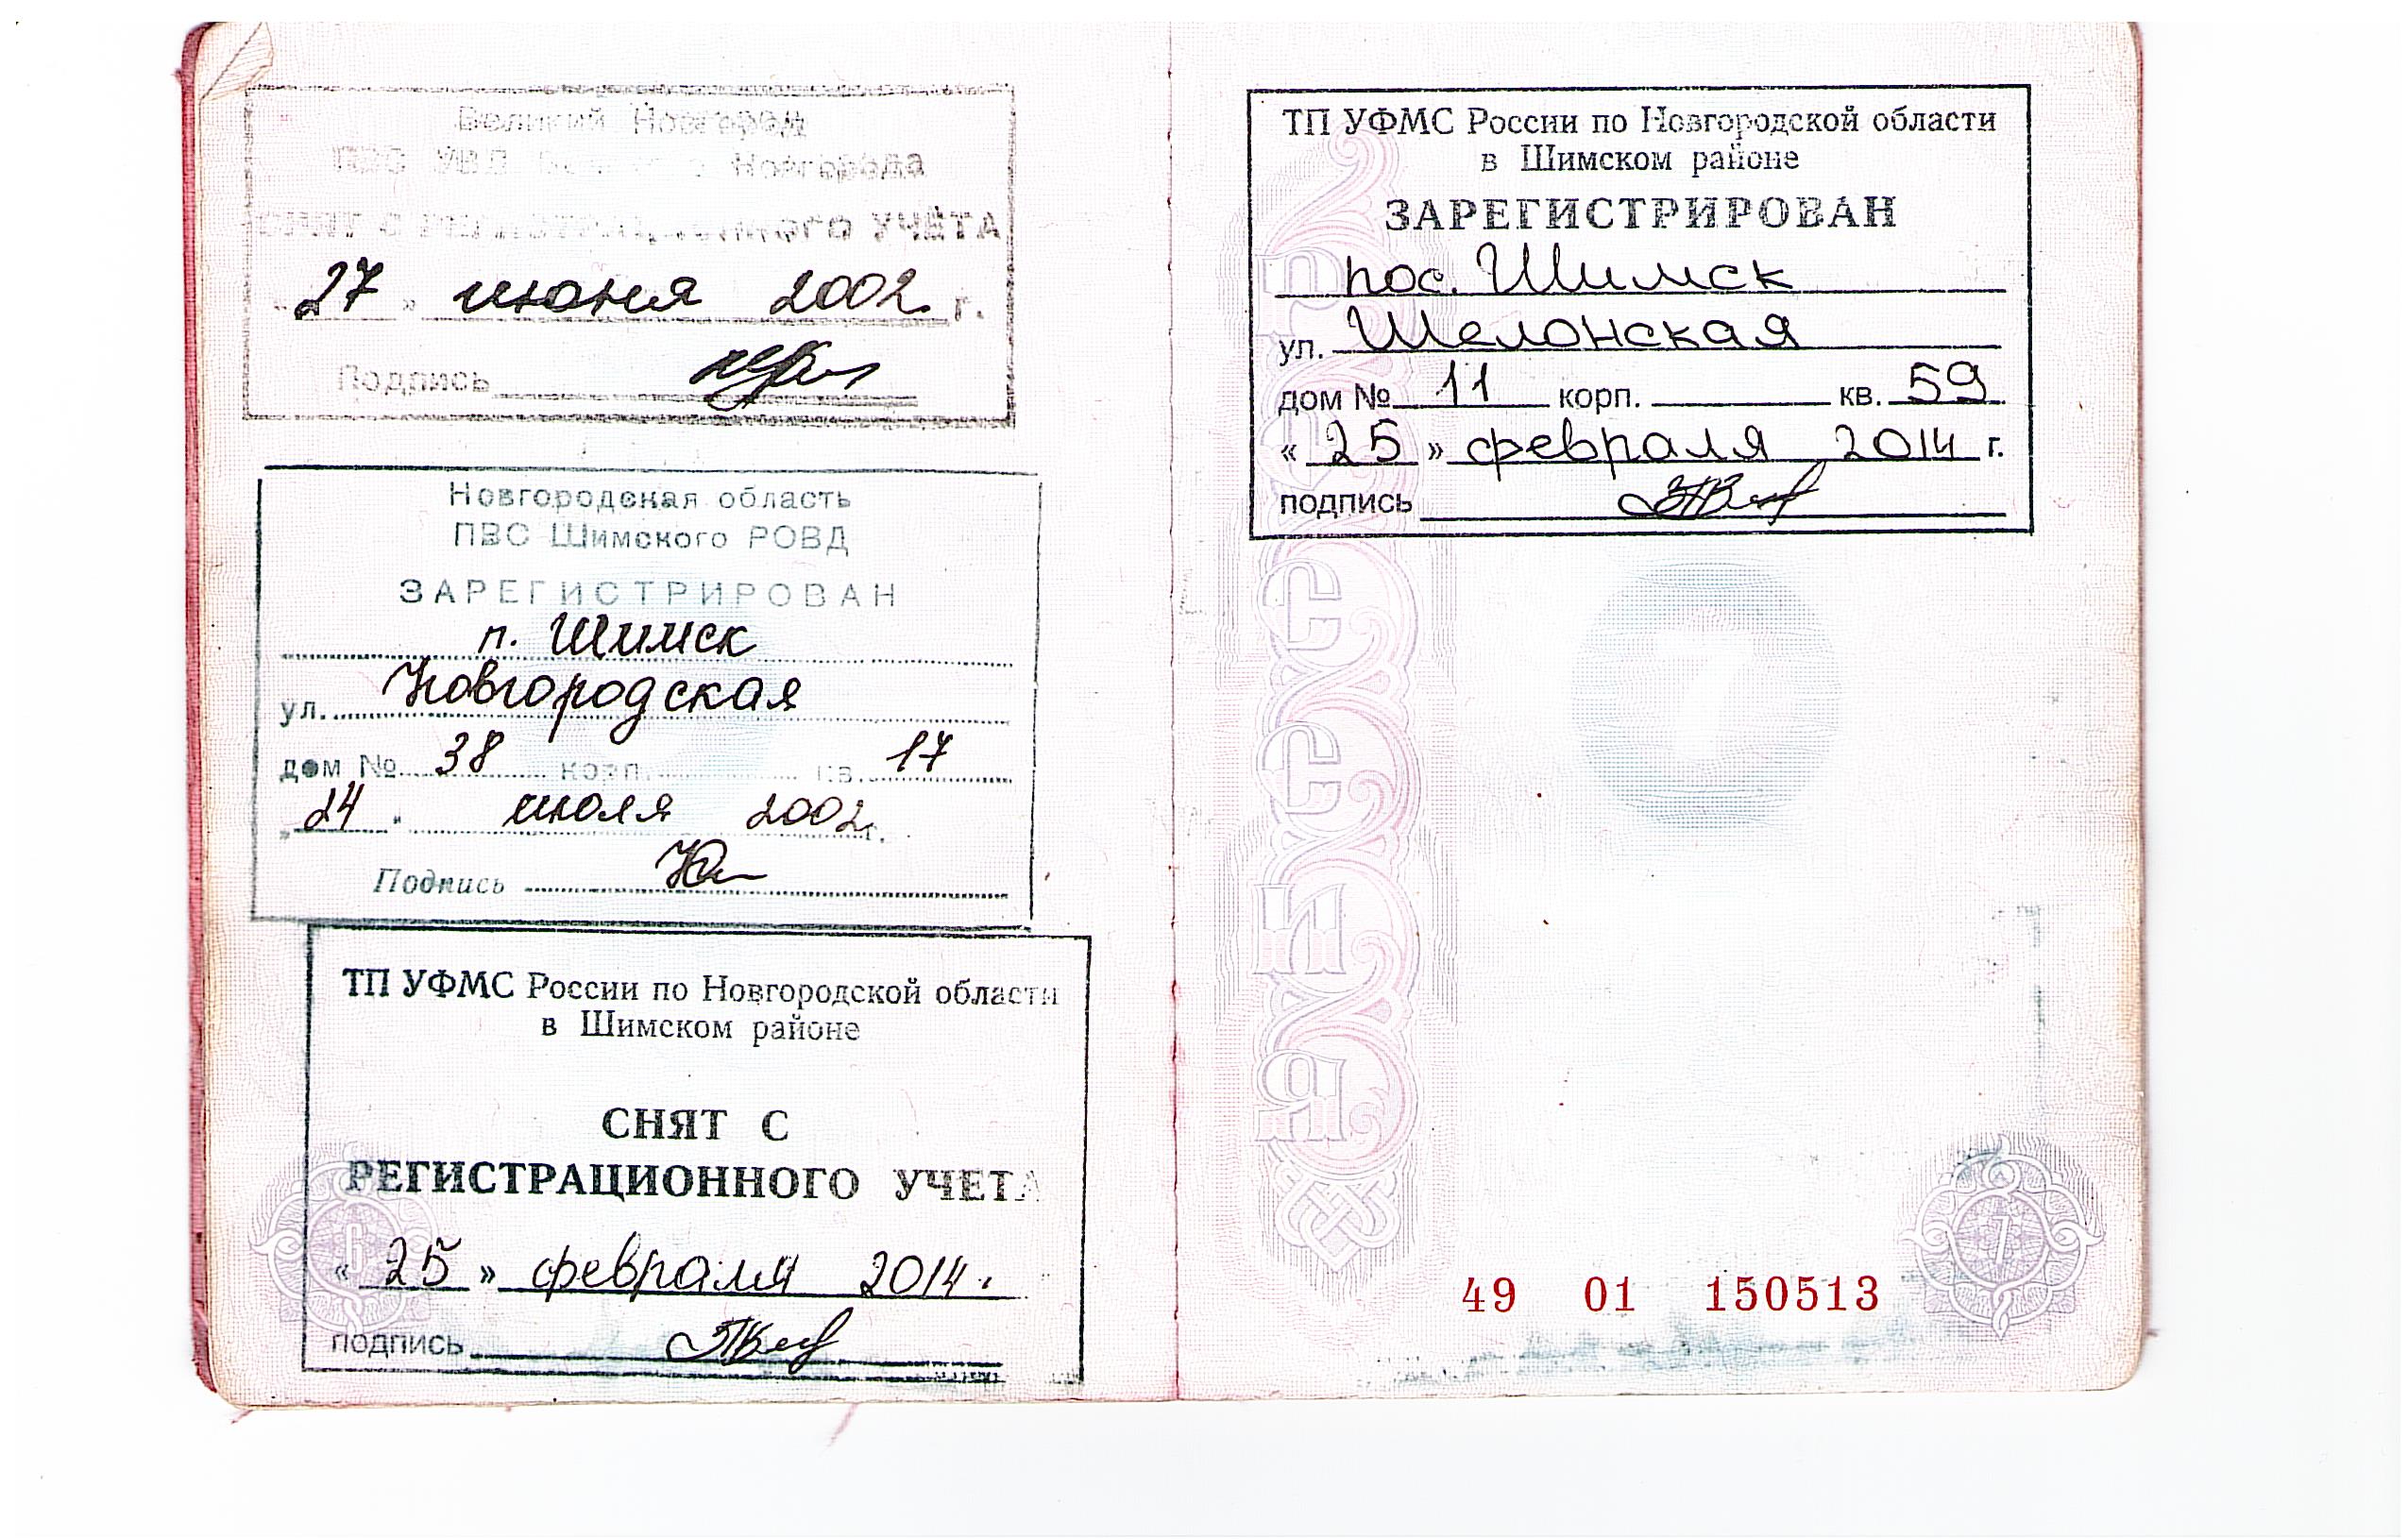 Великий Новгород
ПВС УВД Новгорода
СНЯТ С РЕГИСТРАЦИОННОГО УЧЁТА
27 » июня 2002 г.
Подпись
Новгородская область
ПВС Шимского РОВД
ЗАРЕГИСТРИРОВАН
п. Шимск
ул. Новгородская
дом № 38 корп. кв. 17
„ 24 " июля 2002 г.
Подпись
ТП УФМС России по Новгородской области
в Шимском районе
СНЯТ С
РЕГИСТРАЦИОННОГО УЧЕТА
« 25 » февраля 2014 г.
подпись
6
ТП УФМС России по Новгородской области
в Шимском районе
ЗАРЕГИСТРИРОВАН
пос. Шимск
ул. Шелонская
дом № 11 корп. кв. 59
« 25 » февраля 2014 г.
подпись
РОССИЯ
7
49 01 150513